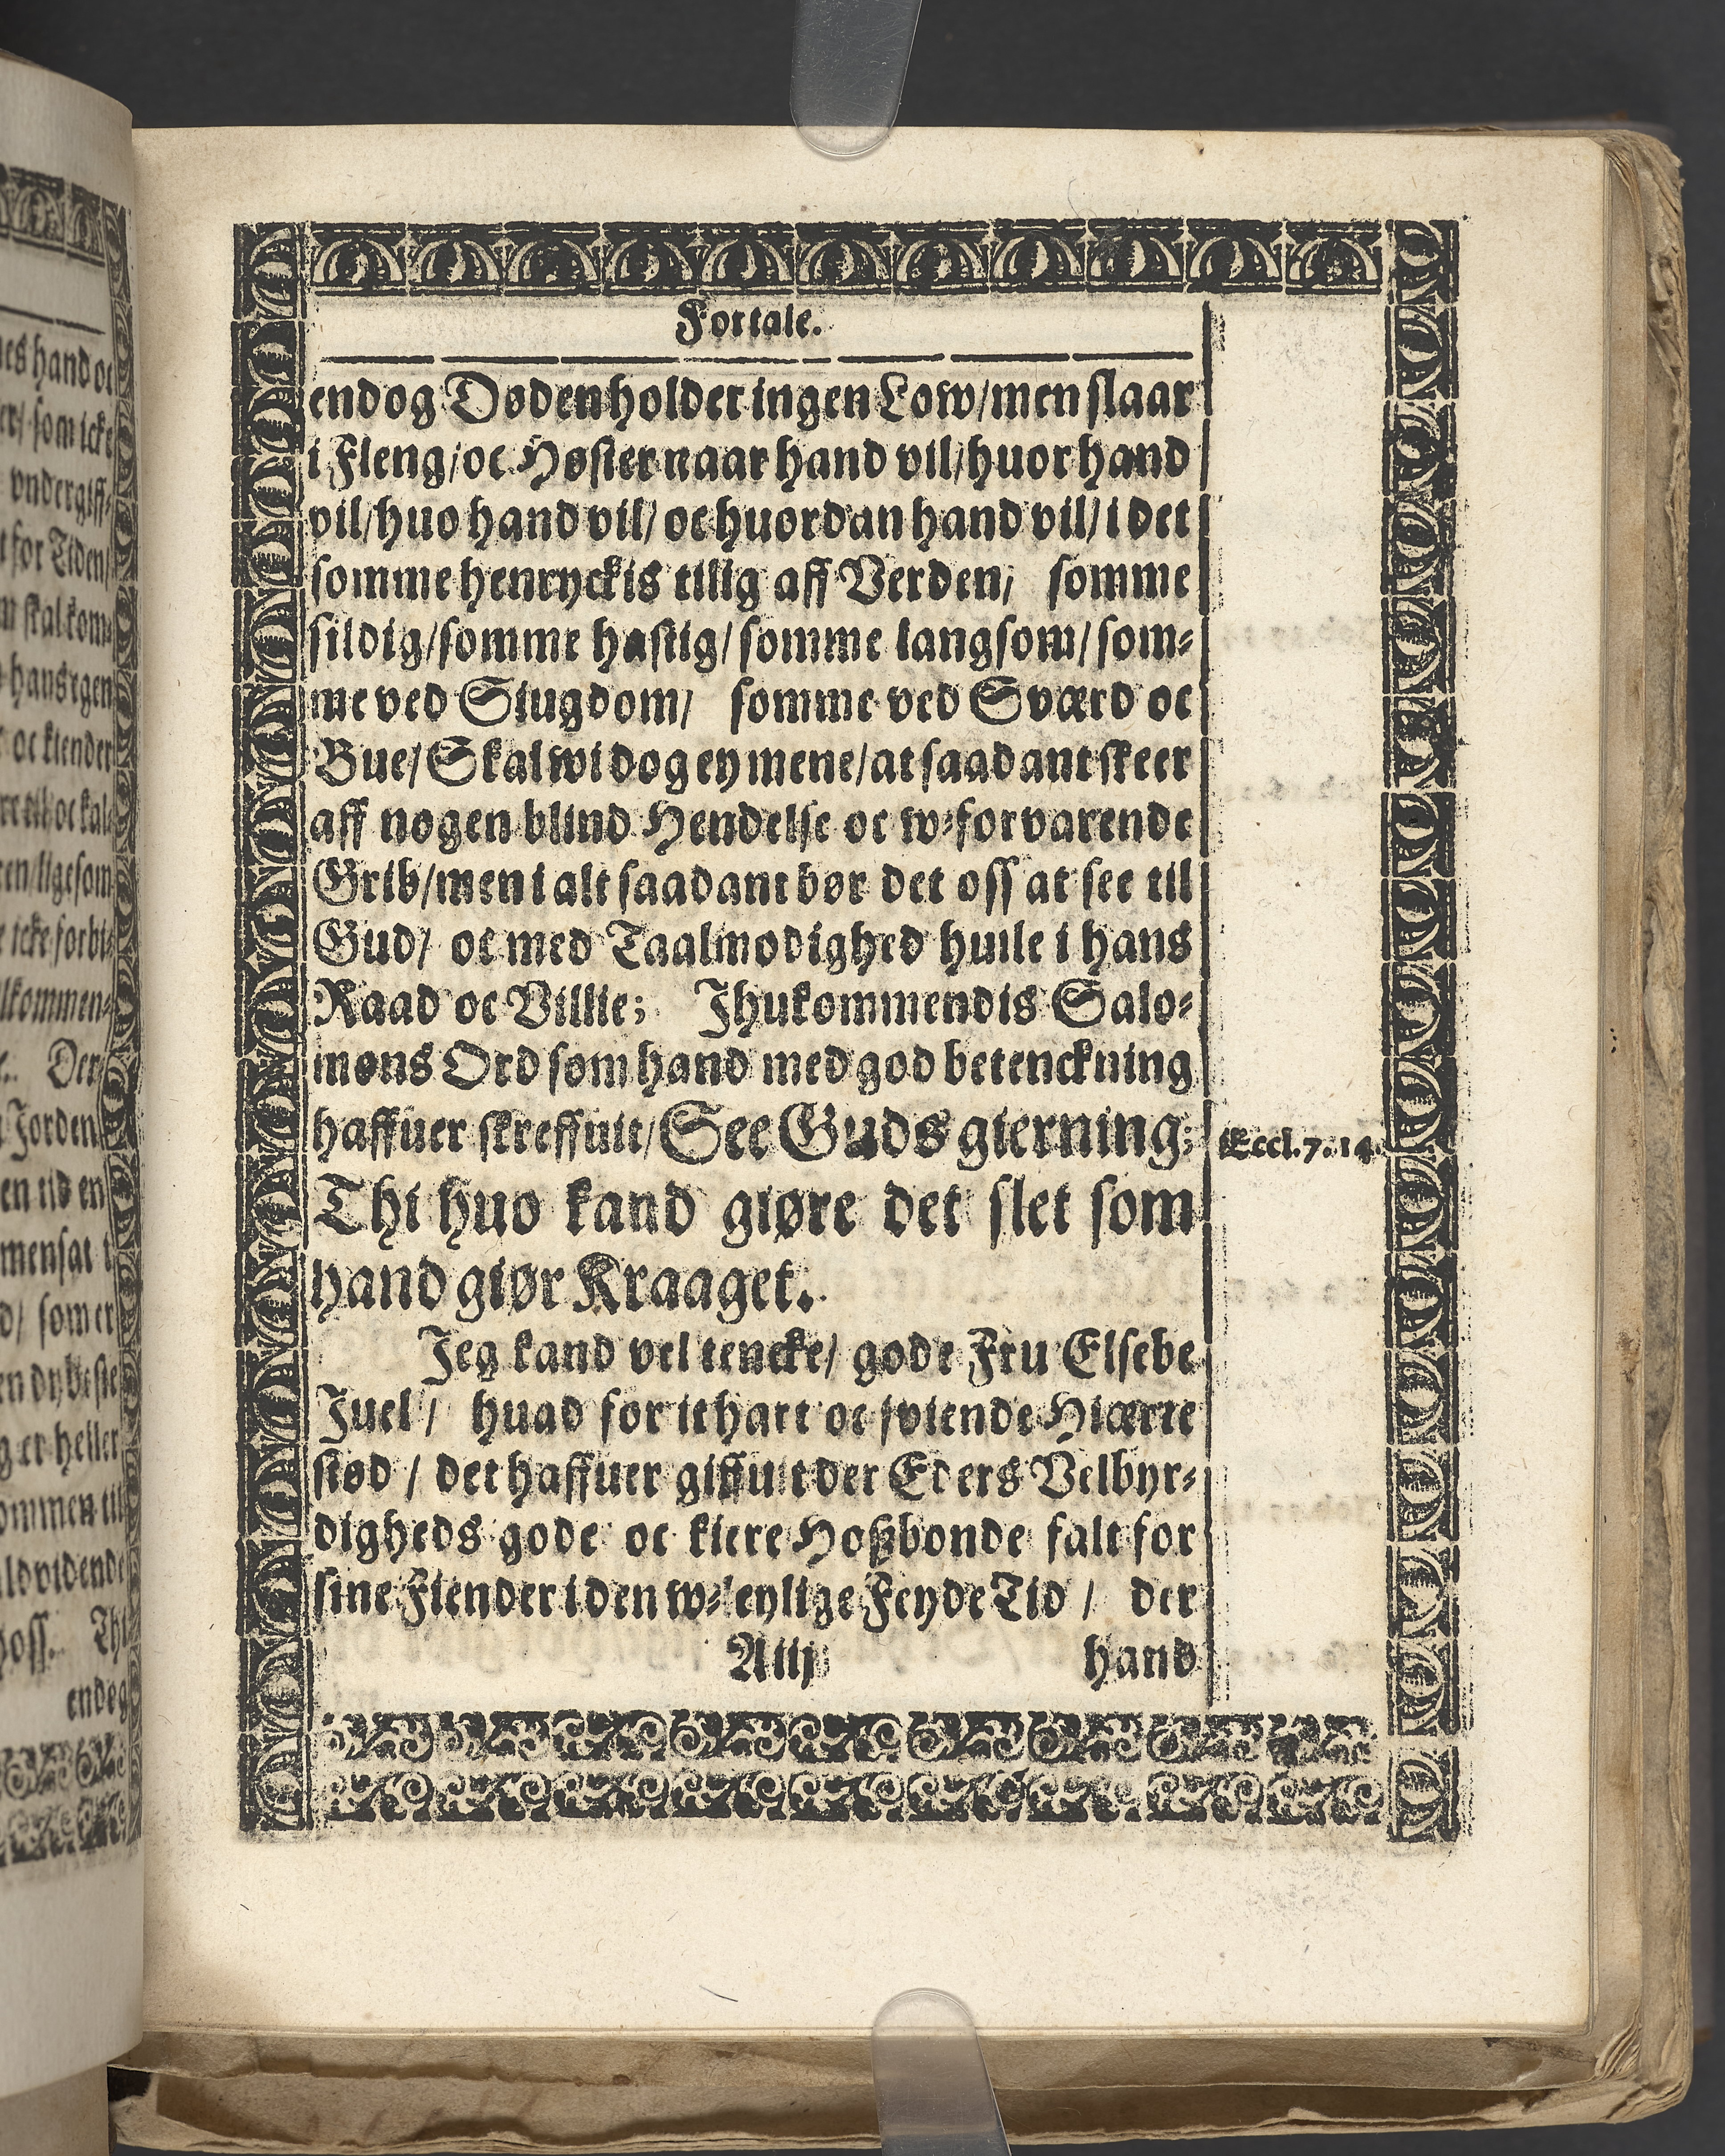 Fortale.
endog Døden holder ingen Low/men slaar
i Fleng/oc Høster naar hand vil/huor hand
vil/huo hand vil/ oc huordan hand vil/ i det
somme henryckis tilig aff Verden/ somme
sildig/somme hastig/somme langsom/som⸗
me ved Siugdom/ somme ved Sværd oc
Bue/Skal wi dog ey mene/at saadant skeer
aff nogen blind Hendelse oc w⸗forvarende
Grib/men i alt saadant bør det oss at see til
Gud/ oc med Taalmodighed huile i hans
Raad oc Villie; Jhukommendis Salo⸗
mons Ord som hand med god betenckning
haffuer skreffuit/See Guds gierning;
Eccl.7.14.
Thi huo kand giøre det slet som
hand giør Kraaget.
Jeg kand vel tencke/ gode Fru Elsebe
Juel/ huad for it hart oc sviende Hiærte
stød / det haffuer giffuit der Eders Velbyr⸗
digheds gode oc kiere Hoßbonde falt for
sine Fiender i den w⸗leylige Feyde Tid / der
A iij hand
nes hand oc
som icke
vndergiff⸗
for Tiden/
skal kom⸗
hans egen
oc kiender
til oc kal⸗
ligesom
icke forbi⸗
Der
Jorden
en tid en
mensat i
som er
en dybeste
er heller
ommen til
oss. Thi
endog